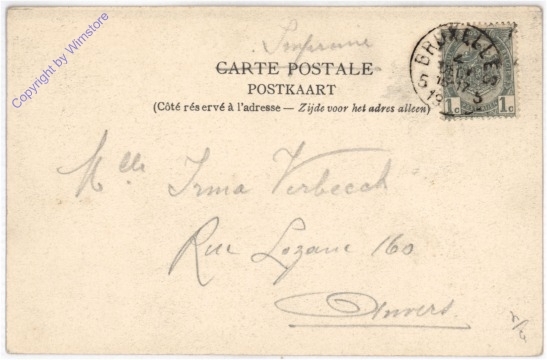 Copyright by Wimstore
Imprimé
CARTE POSTALE
POSTKAART
(Côté réservé à l'adresse — Zijde voor het adres alleen)
BRUXELLES 5
1c 1c
Mlle Irma Verbeeck
Rue Lozane 160
Anvers